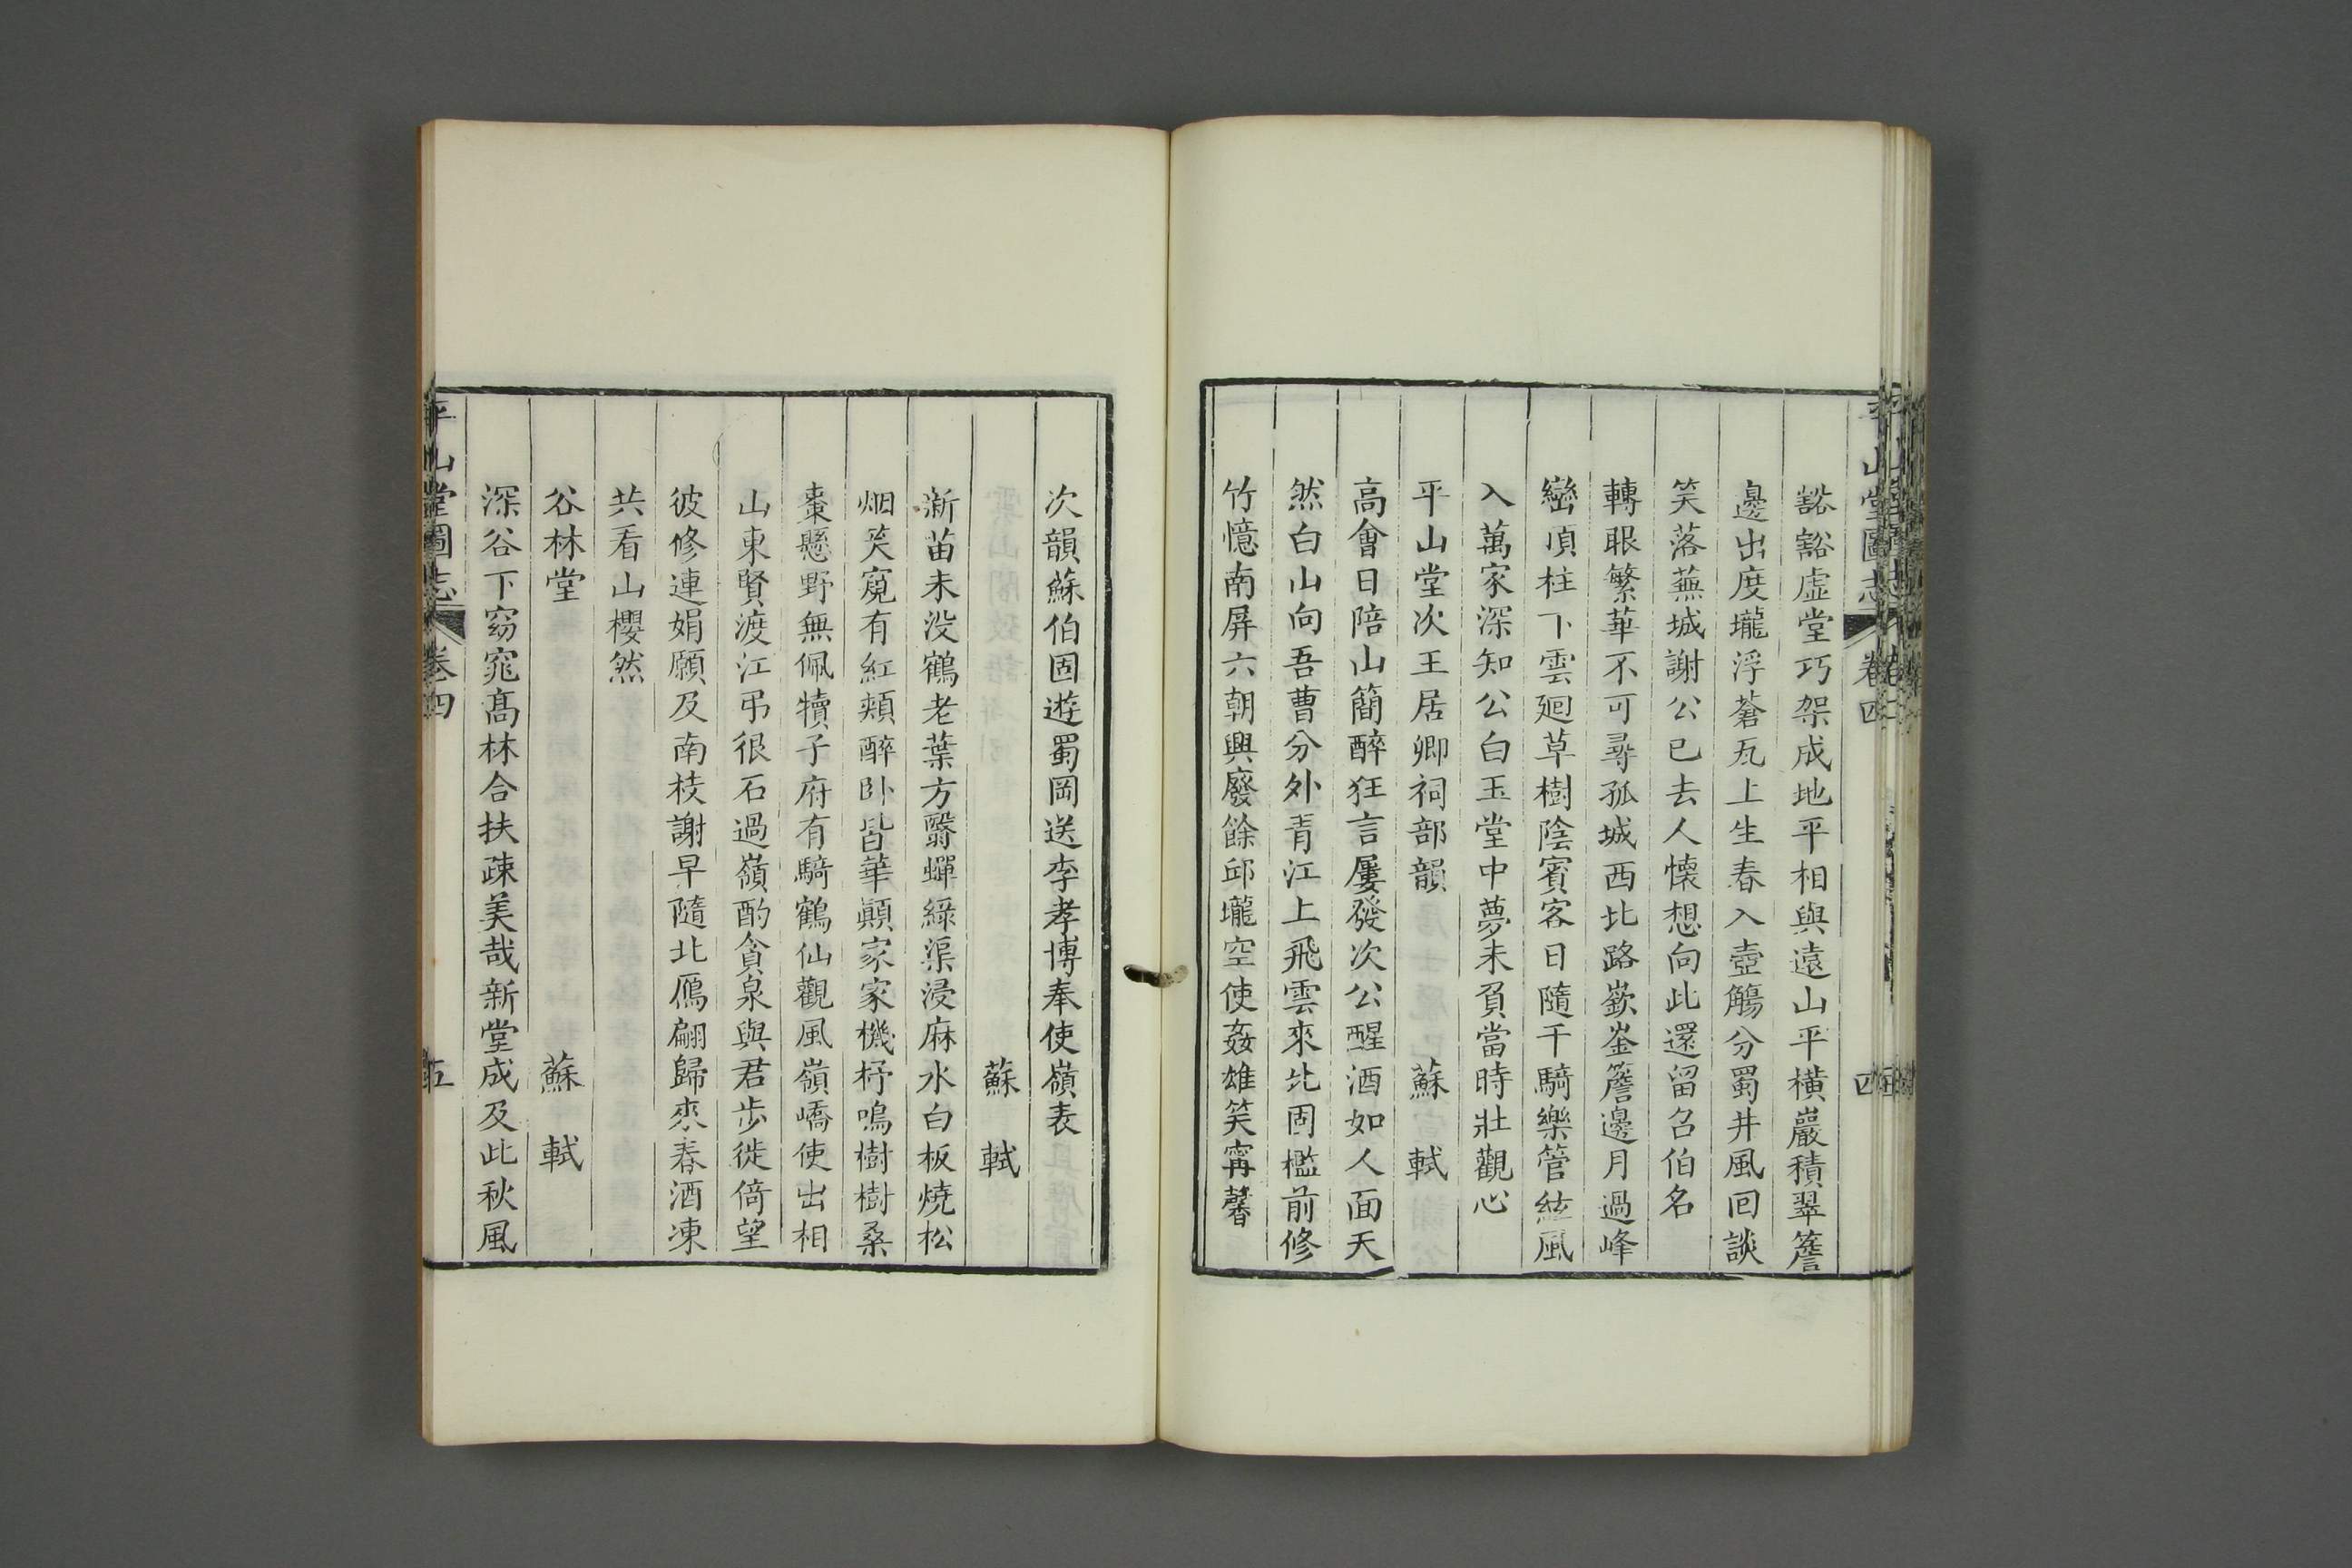 平山堂圖志 卷四 四
豁豁虛堂巧架成地平相與遠山平橫巖積翠簷
邊出度壠浮蒼瓦上生春入壺觴分蜀井風回談
笑落蕪城謝公已去人懷想向此還留召伯名
轉眼繁華不可尋孤城西北路嶔崟簷邊月過峰
巒頂柱下雲廻草樹陰賓客日隨千騎樂管絃風
入萬家深知公白玉堂中夢未負當時壯觀心
平山堂次王居卿祠部韻 蘇軾
高會日陪山簡醉狂言屢發次公醒酒如人面天
然白山向吾曹分外青江上飛雲來北固檻前修
竹憶南屏六朝興廢餘邱壠空使姦雄笑甯馨
次韻蘇伯固遊蜀岡送李孝博奉使嶺表
蘇軾
新苗未没鶴老葉方翳蟬綠渠浸麻水白板燒松
烟笑窺有紅頰醉卧皆華顚家家機杼鳴樹樹桑
棗懸野無佩犢子府有騎鶴仙觀風嶺嶠使出相
山東賢渡江弔很石過嶺酌貪泉與君步徙倚望
彼修連娟願及南枝謝早隨北鴈翩歸來春酒凍
共看山櫻然
谷林堂 蘇軾
深谷下窈窕髙林合扶疎美哉新堂成及此秋風
平山堂圖志 卷四 五